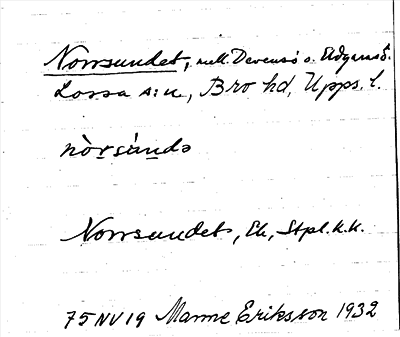 Norrsundet, mell. Devensö o. Ådgansö.
Lossa s:n, Bro hd, Upps. l.
nòrsúndə
Norrsundet, Ek, Stpl.k.k.
75NV19 Manne Eriksson 1932